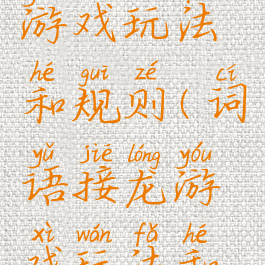 游戏玩法
hé guī zé cí
和规则(词
yǔ jiē lóng yóu
语接龙游
xì wán fǎ hé
戏玩法和